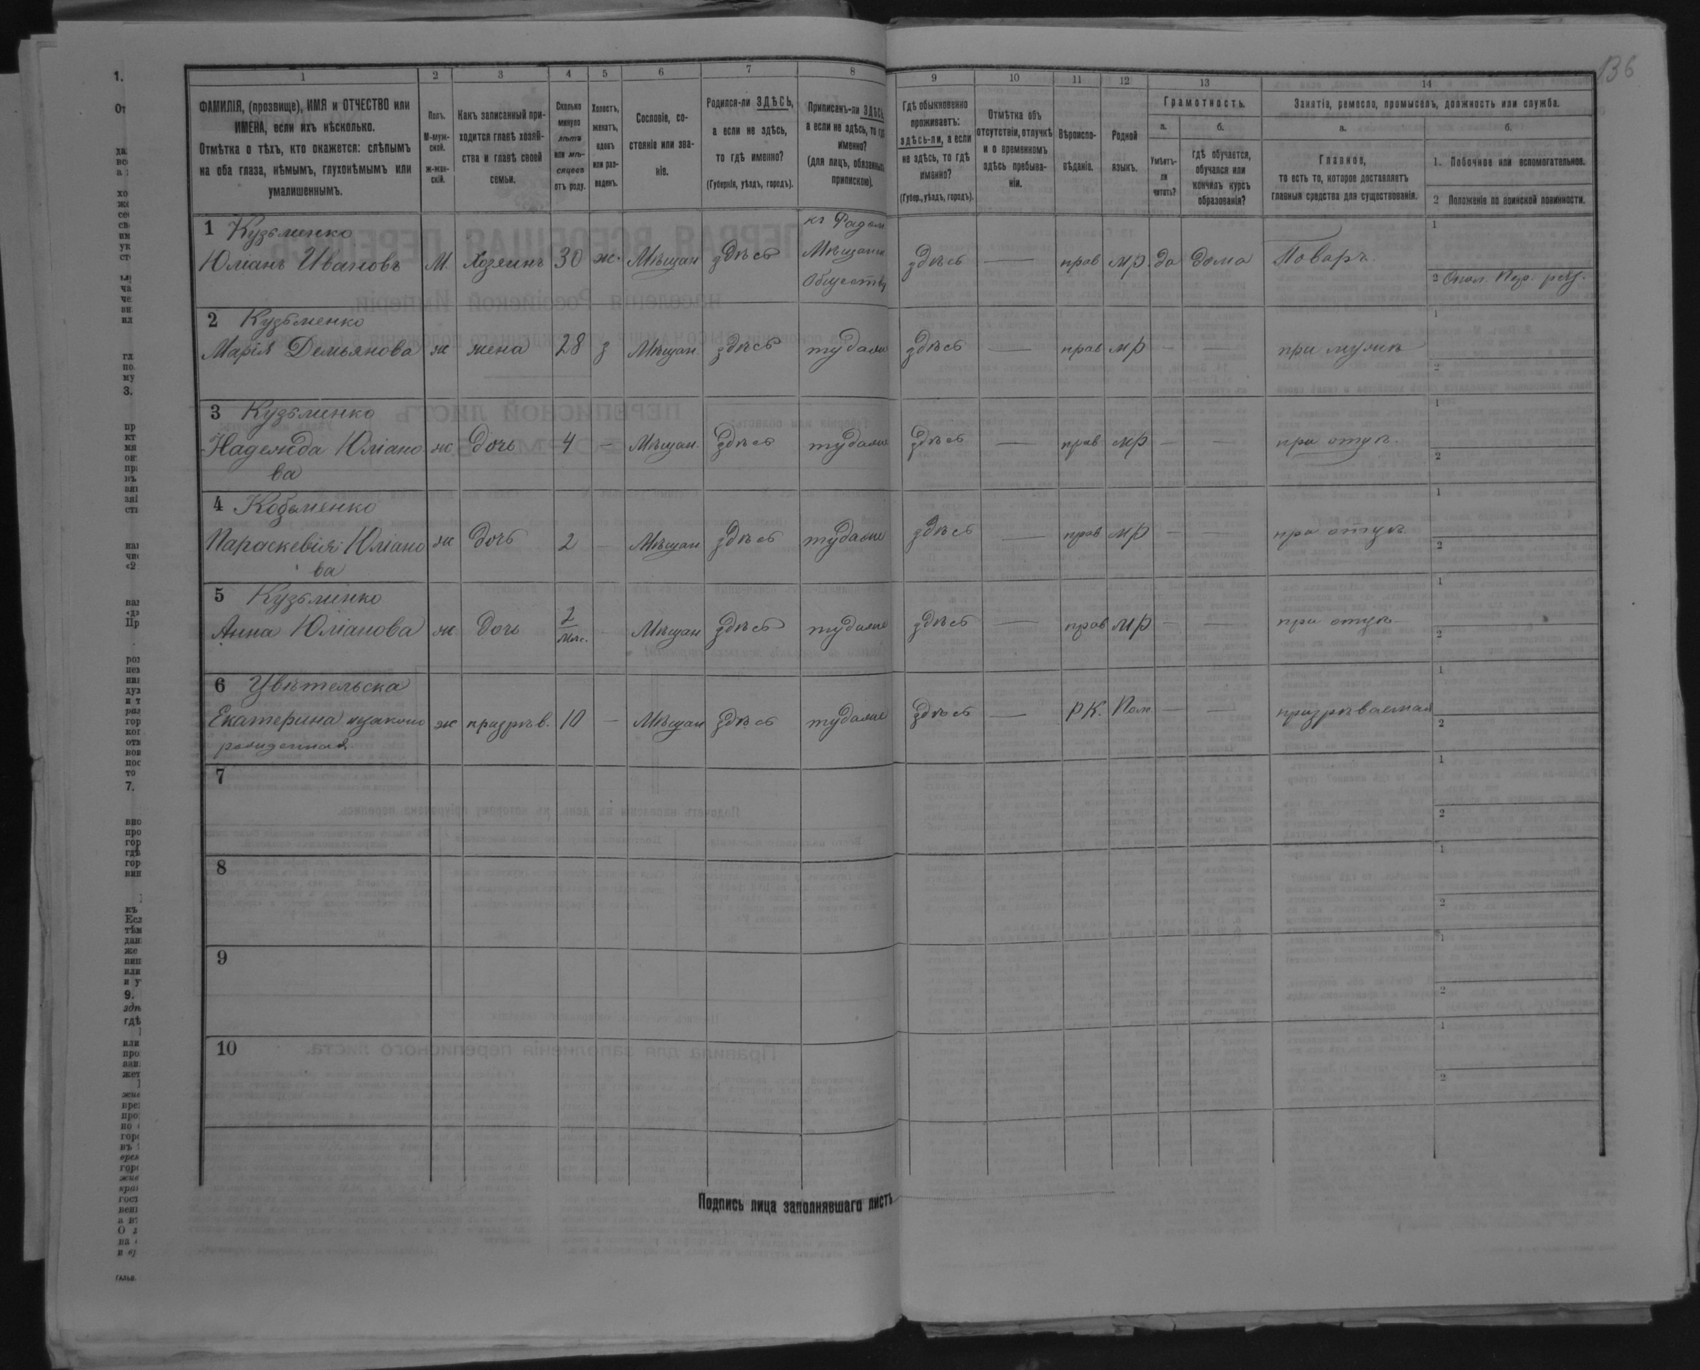 136
1 2 3 4 5 6 7 8 9 10 11 12 13 14
ФАМИЛІЯ, (прозвище), ИМЯ и ОТЧЕСТВО или
ИМЕНА, если ихъ нѣсколько.
Отмѣтка о тѣхъ, кто окажется: слѣпымъ
на оба глаза, нѣмымъ, глухонѣмымъ или
умалишеннымъ.
Полъ.
М-муж-
ской.
ж-жен-
скій.
Какъ записанный при-
ходится главѣ хозяй-
ства и главѣ своей
семьи.
Сколько
минуло
лѣтъ
или мѣ-
сяцевъ
отъ роду.
Холостъ,
женатъ,
вдовъ
или раз-
веденъ.
Сословіе, со-
стояніе или зва-
ніе.
Родился-ли ЗДѢСЬ,
а если не здѣсь,
то гдѣ именно?
(Губернія, уѣздъ, городъ).
Приписанъ-ли ЗДѢСЬ,
а если не здѣсь, то гдѣ
именно?
(для лицъ, обязанныхъ
припискою).
Гдѣ обыкновенно
проживаетъ:
здѣсь-ли, а если
не здѣсь, то гдѣ
именно?
(Губер., уѣздъ, городъ).
Отмѣтка объ
отсутствіи, отлучкѣ
и о временномъ
здѣсь пребыва-
ніи.
Вѣроиспо-
вѣданіе.
Родной
языкъ.
Грамотность.
а.
Умѣетъ-
ли
читать?
б.
гдѣ обучается,
обучался или
кончилъ курсъ
образованія?
Занятія, ремесло, промыселъ, должность или служба.
а.
Главное,
то есть то, которое доставляетъ
главныя средства для существованія.
б.
1. Побочное или вспомогательное.
2 Положеніе по воинской повинности.
1 Кузьминко
Юліанъ Ивановъ М. Хозяинъ 30 ж. Мѣщан здѣсь
Мѣщанс
Обществу
здѣсь — прав мр. да дома Поваръ
1
2
2 Кузьменко
Марія Демьянова ж жена 28 з Мѣщан. здѣсь тудаже здѣсь — прав мр — — при мужѣ
1
2
3 Кузьминко
Надежда Юліано ж Дочь 4 — Мѣщан. здѣсь тудаже здѣсь — прав мр — — при отцѣ.
ва
1
2
4 Козьменко
Параскевія Юліано ж Дочь 2 — Мѣщан здѣсь тудаже здѣсь — прав мр — — при отцѣ
ва
1
2
5 Кузьминко
Анна Юліанова ж Дочь 2 мѣс. — Мѣщан здѣсь тудаже здѣсь — прав мр — — при отцѣ
1
2
6 Цвѣтельска
Екатерина ж призрѣв. 10 — Мѣщан здѣсь тудаже здѣсь — РК. Пол — — призрѣваемая
рожденная
1
2
7
1
2
8
1
2
9
1
2
10
1
2
Подпись лица заполнявшаго листъ